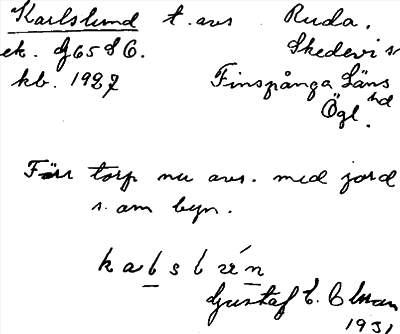 Karlslund t. avs Ruda.
ek. G65SO. Skedevi sn
kb. 1927 Finspånga Läns hd
Ögl.
Förr torp nu avs. med jord
s. om byn.
Gustaf E.
1931